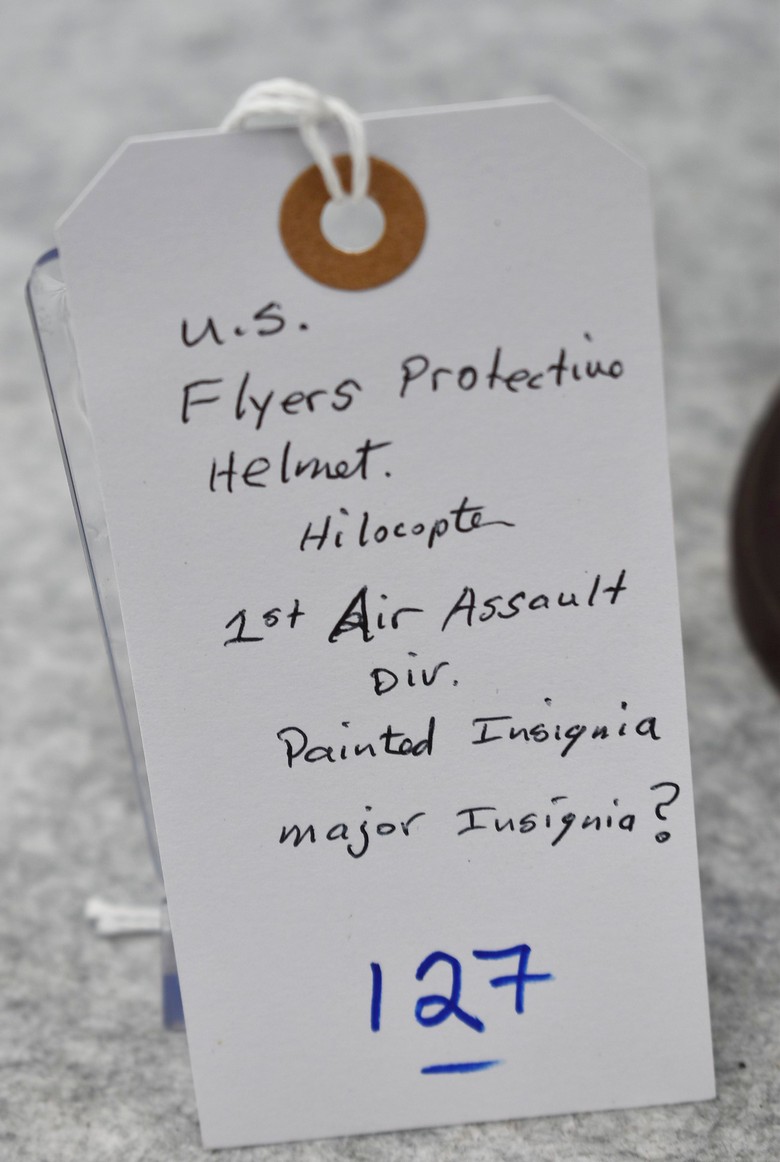 U.S.
Flyers Protective
Helmet.
Hilocopter
1st Air Assault
Div.
Painted Insignia
major Insignia?
127